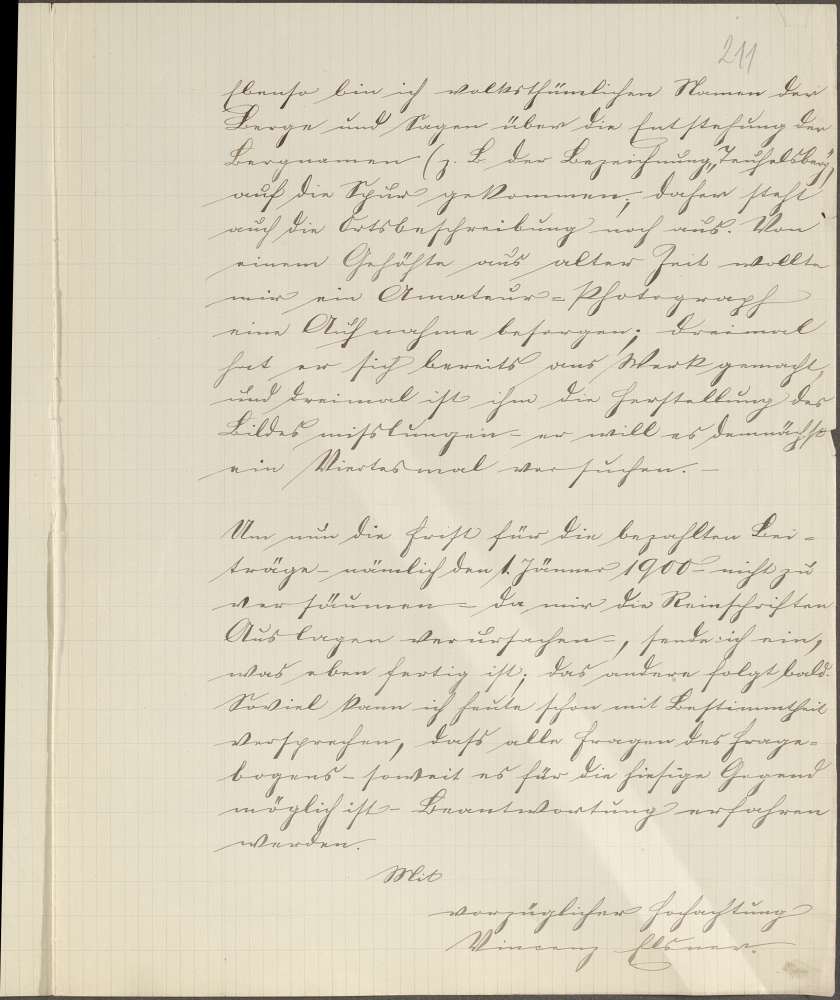 211
Ebenso bin ich volksthümlichen Namen der
Berge und Sagen über die Entstehung der
Bergnamen (z. B. der Bezeichnung „Teufelsberg“)
auf die Spur gekommen; daher steht
auch die Ortsbeschreibung noch aus. Von
einem Gehöfte aus alter Zeit wollte
mir ein Amateur-Photograph
eine Aufnahme besorgen; dreimal
hat er sich bereits ans Werk gemacht,
und dreimal ist ihm die Herstellung des
Bildes misslungen – er will es demnächst
ein Viertesmal versuchen. –
Um nun die Frist für die bezahlten Bei-
träge – nämlich den 1. Jänner 1900 – nicht zu
versäumen – da mir die Reinschriften
Auslagen verursachen –, sende ich ein,
was eben fertig ist; das andere folgt bald.
Soviel kann ich heute schon mit Bestimmtheit
versprechen, dass alle Fragen des Frage-
bogens – soweit es für die hiesige Gegend
möglich ist – Beantwortung erfahren
werden.
Mit
vorzüglicher Hochachtung
Vincenz Elsner.